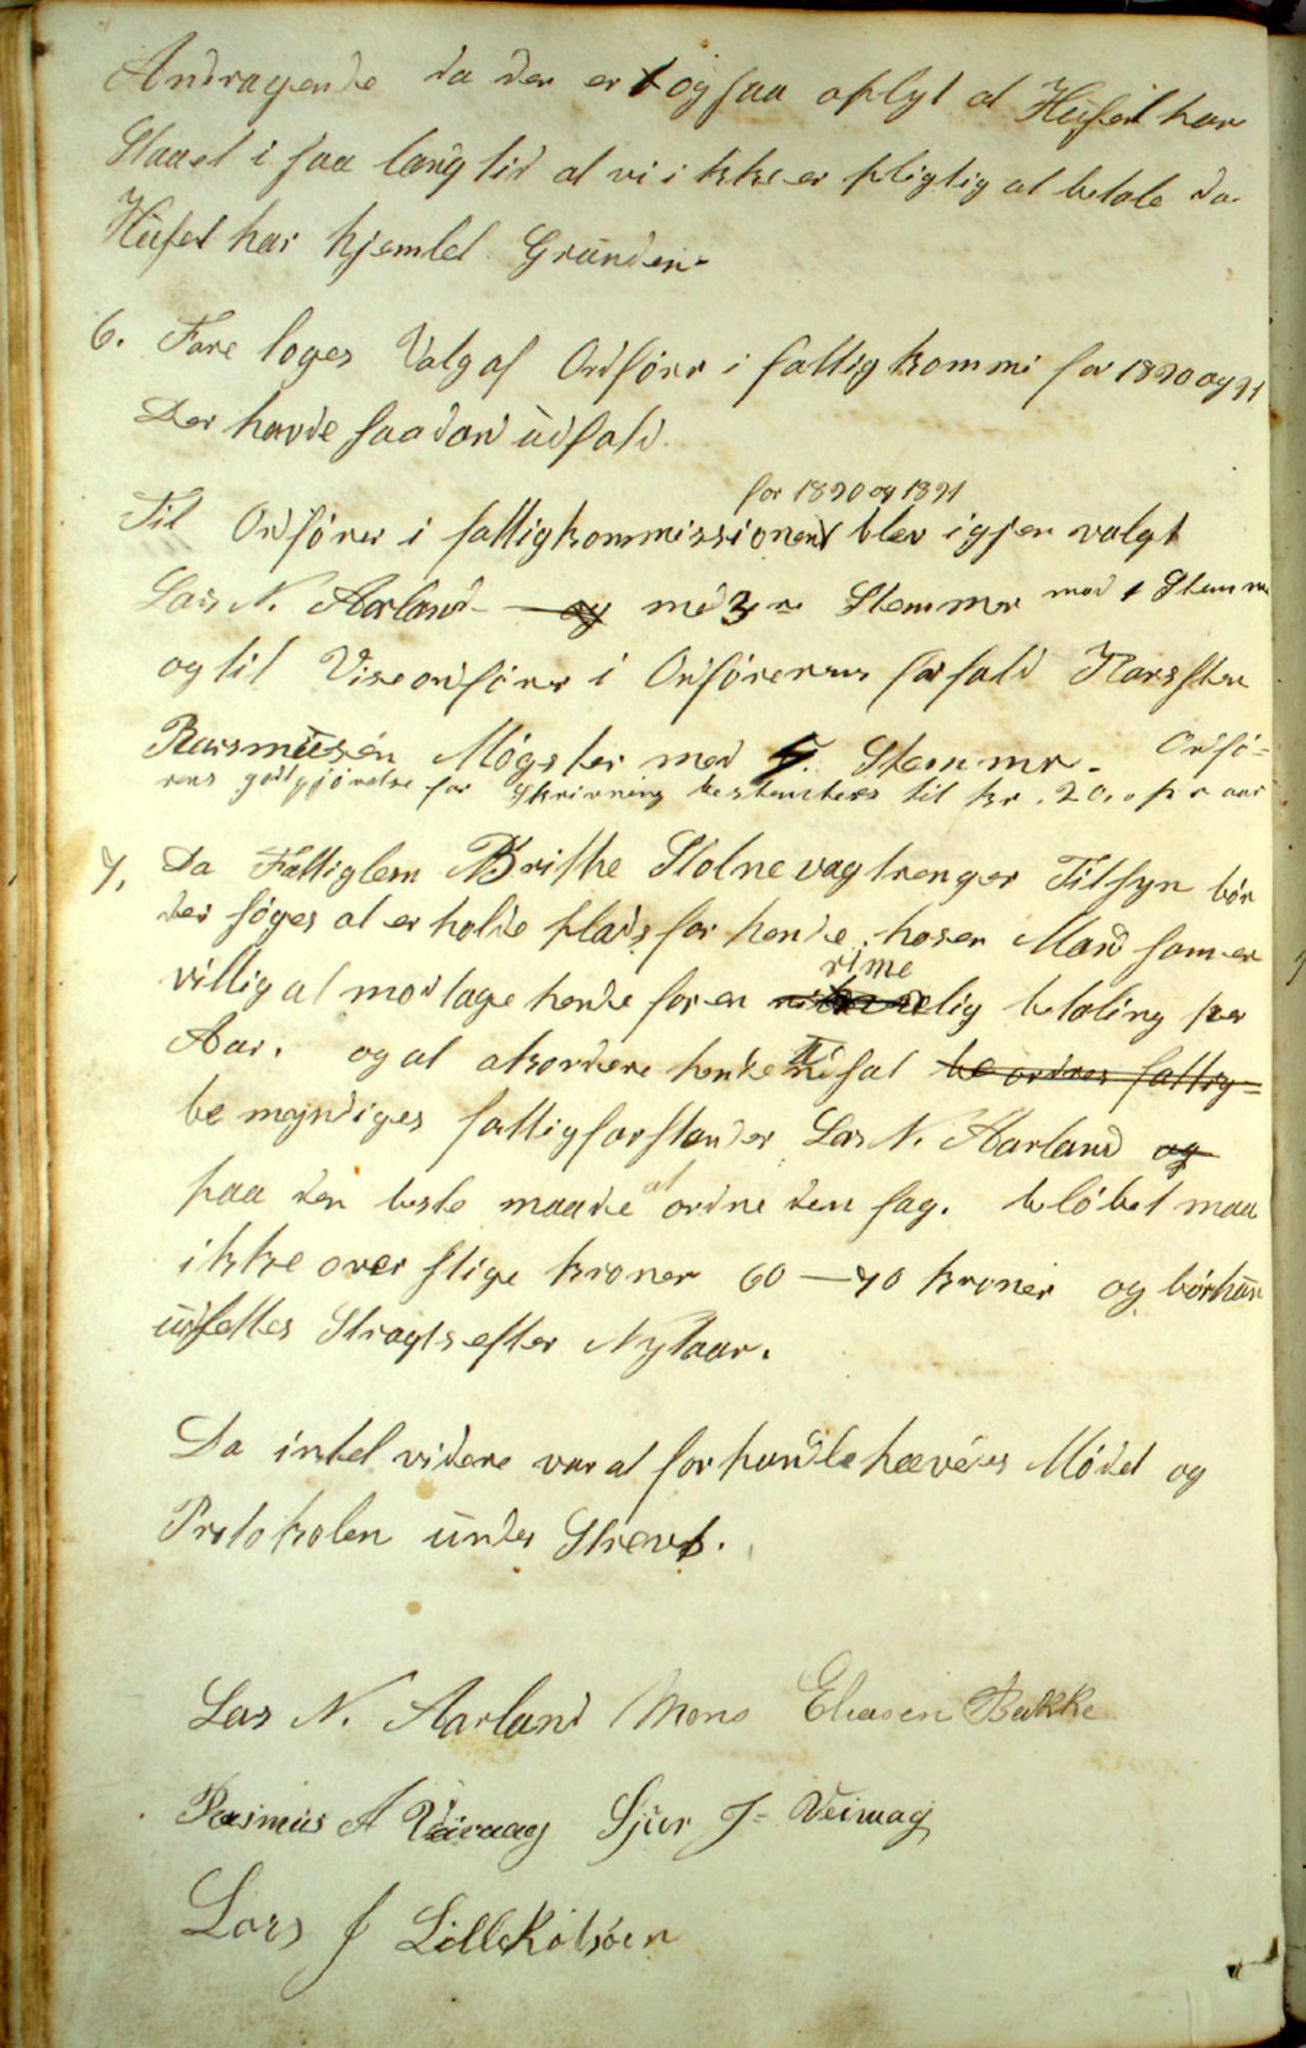 Andragende da der er ogsaa oplyst at Huset har
Staaet i saa lang tid at vi ikke er pligtig at betale da
Huset har hjemlet Grunden-
6. Fore toges Valg af Ordförer i fattigkommi for 1890 og 91
Der havde saadan udfald.
for 1890 og 1891
Til Ordförer i fattigkommissionen blev igjen valgt
Lars N. Aarland og med 3re Stemmer mod 1 Stemme
og til Viseordförer i Ordförerens forfald Karsten
Rasmusen Mögster med Stemmer. Ordfö=
rens godtgjörelse for Skrivning bestemtes til kr. 20,0 pr aar
7. Da Fattiglem Brithe Stolnevag trenger Tilsyn bör
der söges at erholde plads for hende hos en Mand som er
villig at modtage hende for en rimelig betaling per
Aar. og at akordere hende be ordres fattig=
bemyndiges fattigforstander Lars N. Aarland og
paa den beste maade at ordne den sag. belöbet maa
ikke overstige kroner 60 — 70 kroner og bör hun
udsettes Stragts efter Nytaar.
Da intet videre var at forhandle hævedes Mödet og
Protokolen under Skrevet.
Lars N. Aarland Mons Eliasen Bakke
Rasmus A Veivaag Sjur J= Veivaag
Lars J LilleKalsöen